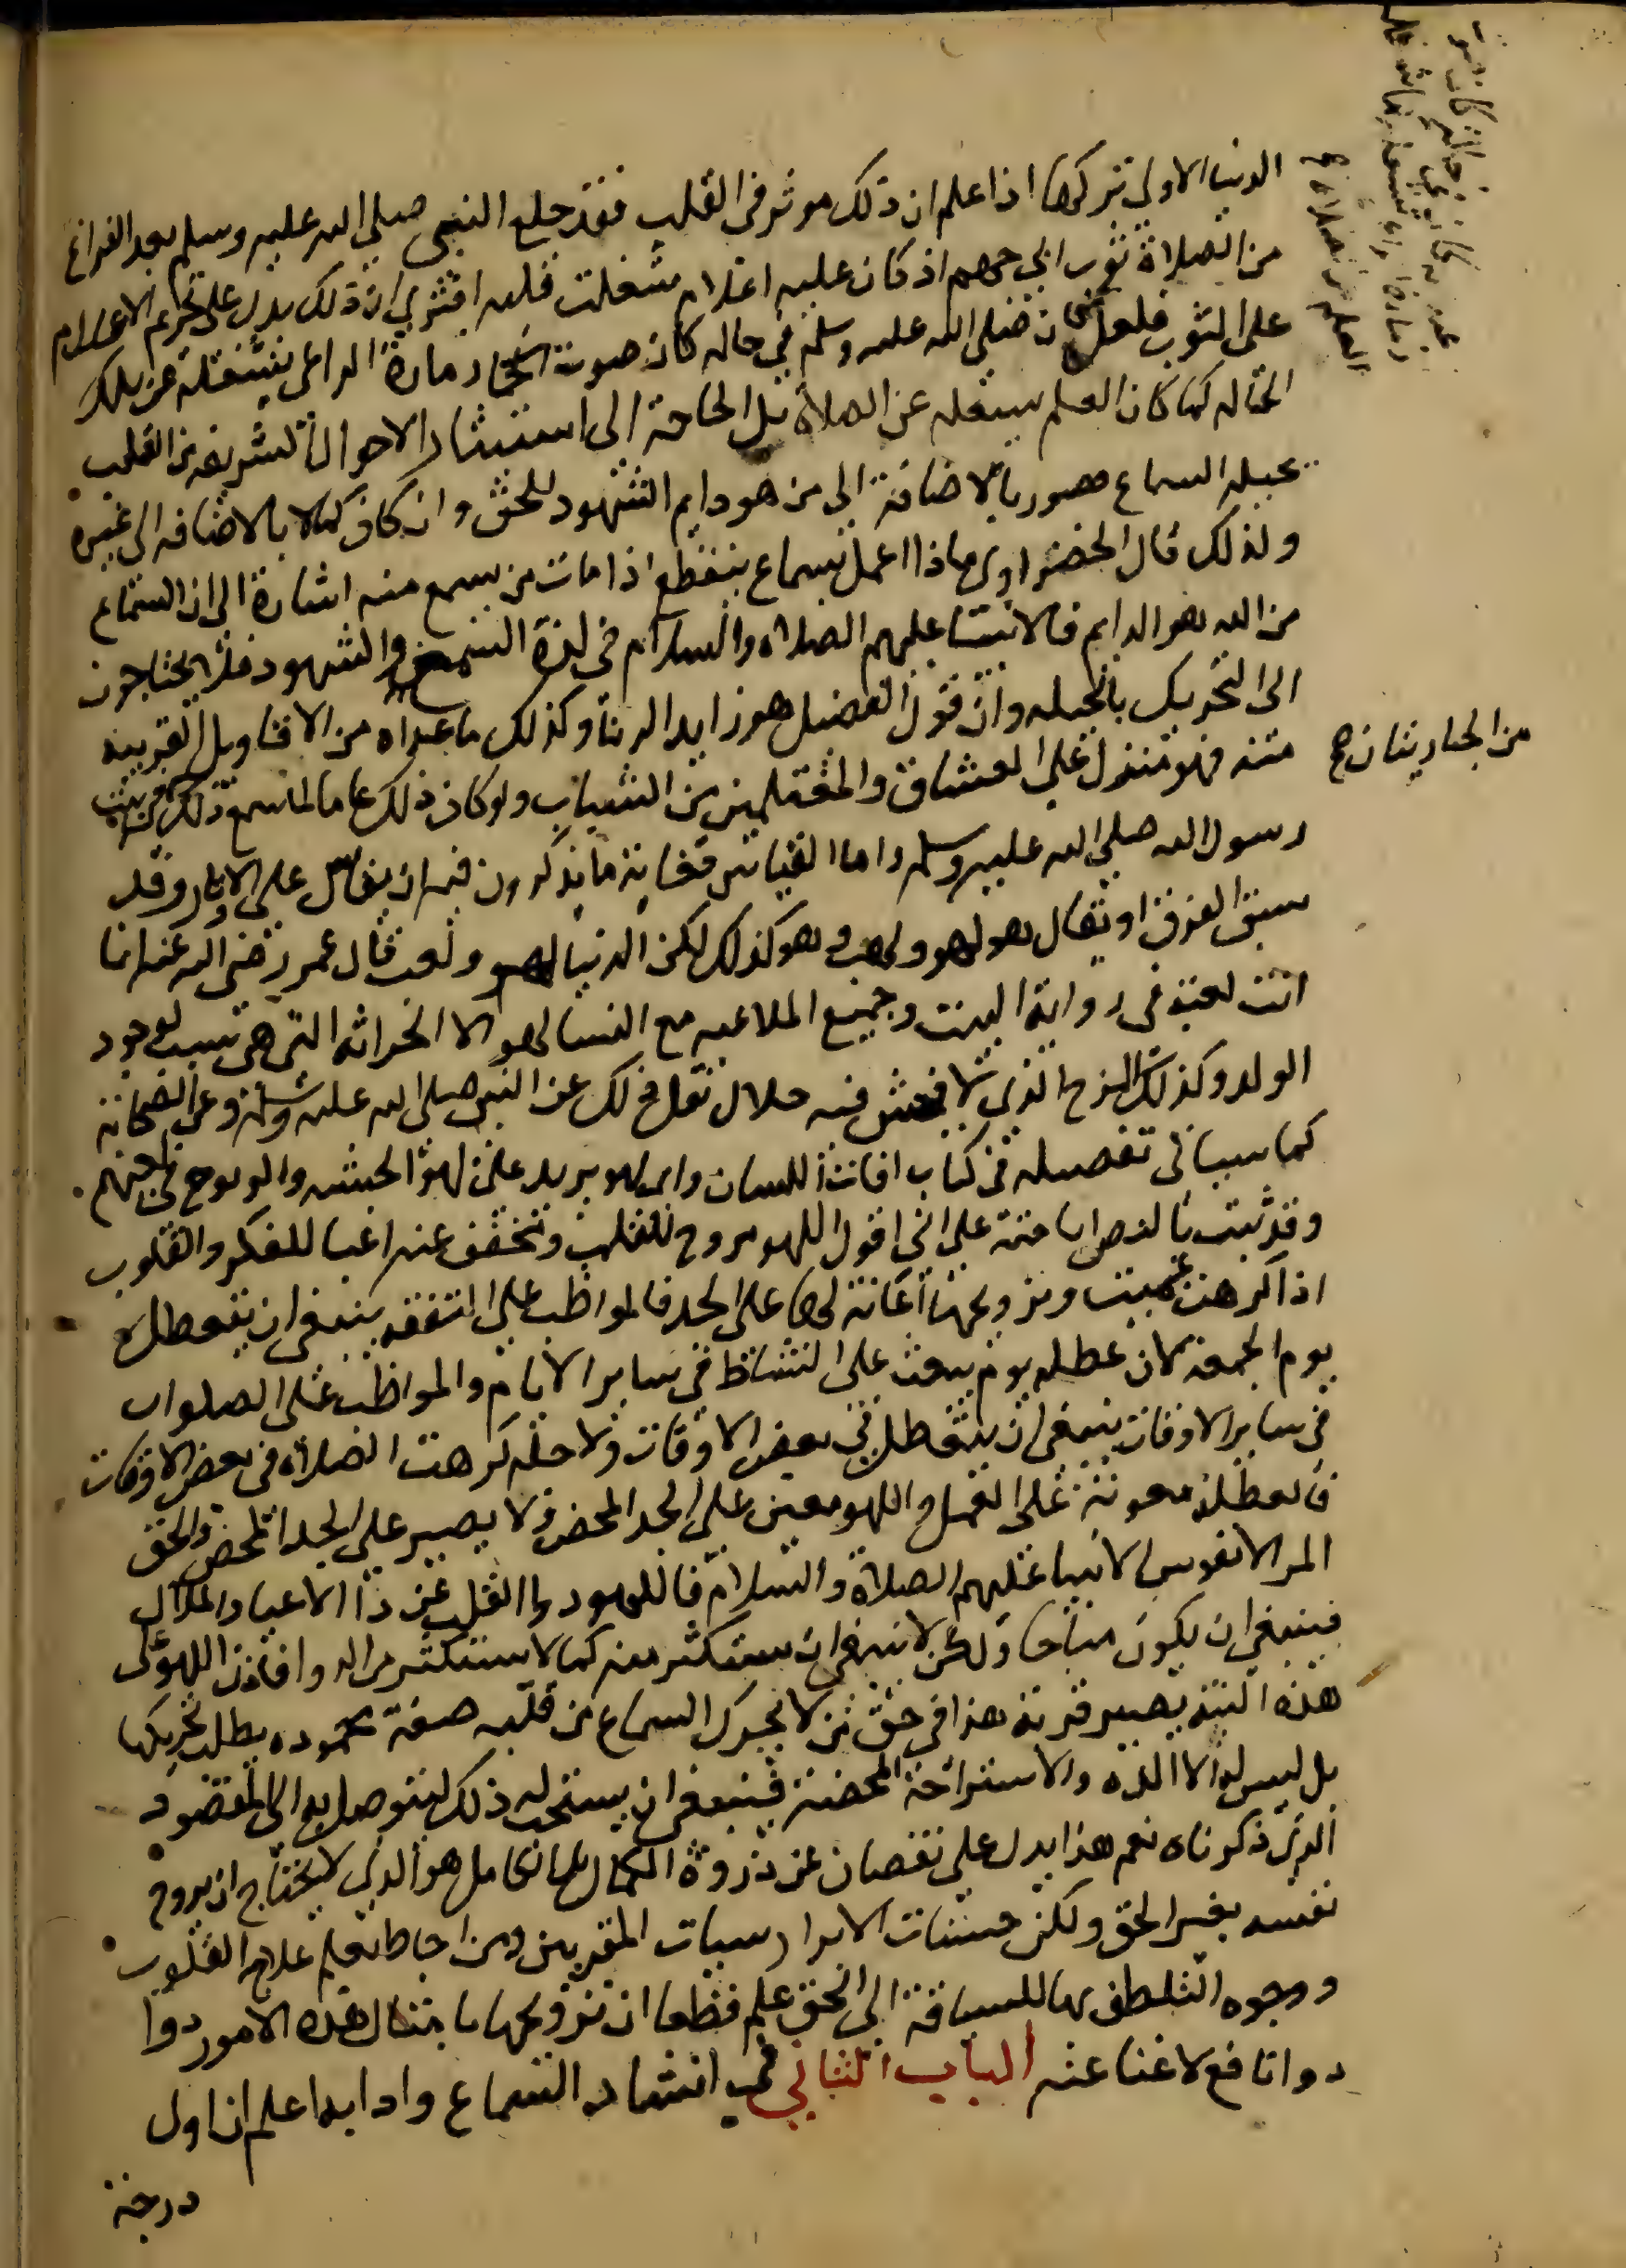 الدنيا الاولى تركها اذا علم ان ذلك موثر في القلب فقد خلع النبي صلى الله عليه وسلم بعد الفراغ
من الصلاة ثوب ابي جهم اذ كان عليه اعلام شغلت قلبه افترى ان ذلك يدل على تحريم الاعلام
على الثوب فلعل صلى الله عليه وسلم في حاله كان صوت الراعي يشغله عن تلك
الحاله كما كان العلم يشغله عن الصلاة بل الحاجة الى استثارة الاحوال الشريفه من القلب
بحيله السماع قصور بالاضافة الى من هو دايم الشهود للحق وان كان كمالا بالاضافه الى غيره
ولذلك قال الحضري ماذا اعمل بسماع ينقطع اذا مات من يسمع منه اشارة الى ان السماع
من الله هو الدايم فالانبيا عليهم الصلاه والسلام في لذة السمع والشهود فلا يحتاجون
الى التحريك بالحيله وان قول الفضيل هو زايد الزنا وكذلك ما عداه من الاقاويل القريبه
منه فهو منزل على العشاق والمغتلمين من الشباب ولو كان ذلك عاما لما سمع ذلك في بيت
رسول الله صلى الله عليه وسلم واما القياس فغاية ما يذكرون فيه ان يقاس على الاوتار وقد
سبق الفرق او يقال هو لهو ولعب وهو كذلك لكن الدنيا لهو ولعب قال عمر رضي الله عنه انما
انت لعبة في زواية البيت وجميع الملاعبه مع النسا لهو الا الحراثه التي هي سبب لوجود
الولد وكذلك المزح الذي لا فحش فيه حلال نقل ذلك عن النبي صلى الله عليه وسلم وعن الصحابة
كما سياتي تفصيله في كتاب افات اللسان واي لهو يزيد على لهو الحبشه والزنوج في لعبهم
وقد ثبت بالنص اباحته على اني اقول اللهو مروح للقلب وتخفف عنه اعبا للفكر والقلوب
اذا اكرهت عميت وترويحها اعانة لها على الجد فالمواظب على التفقه ينبغي ان يتعطل
يوم الجمعه لان عطله يوم يبعث على النشاط في ساير الايام والمواظب على الصلوات
في ساير الاوقات ينبغي ان يتعطل في بعض الاوقات ولاجله كرهت الصلاه في بعض الاوقات
فالعطلة معونة على العمل واللهو معين على الجد المحض ولا يصبر على الجد المحض والحق
المر الا نفوس الانبيا عليهم الصلاة والسلام فاللهو دوا القلب عن دا الاعيا والملال
فينبغي ان يكون مباحا ولكن لا ينبغي ان يستكثر منه كما لا يستكثر من الدوا فاذن اللهو على
هذه النية يصير قربة هذا في حق من لا يحرك السماع من قلبه صفة محموده يطلب تحريكها
بل ليس له الا اللذه والاستراحة المحضة فينبغي ان يستحب له ذلك ليتوصل به الى المقصود
الذي ذكرناه نعم هذا يدل على نقصان عن ذروة الكمال بل الكامل هو الذي لا يحتاج ان يروح
نفسه بغير الحق ولكن حسنات الابرار سيات المقربين ومن احاط بعلم علاج القلوب
ووجوه التلطف بها للسياقة الى الحق علم قطعا ان ترويحها بامثال هذه الامور دوا
دوا نافع لا غنا عنه الباب الثاني في اثار السماع وادابه اعلم ان اول
درجة
من الجاريتان صح